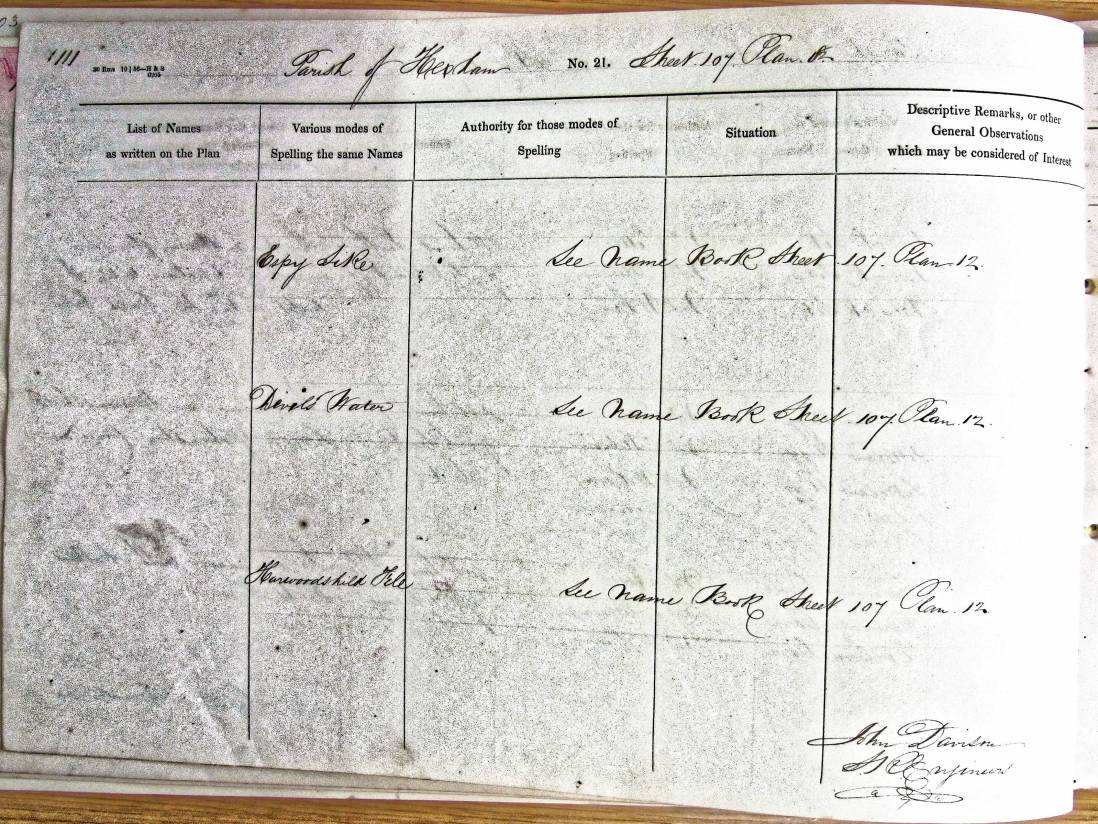 111
Parish of Hexham No. 21. Sheet 107 Plan 8
List of Names
as written on the Plan
Various modes of
Spelling the same Names
Authority for those modes of
Spelling
Situation
Descriptive Remarks, or other
General Observations
which may be considered of Interest
Espy Sike See Name Book Sheet 107. Plan 12.
Devils Water See Name Book Sheet 107. Plan. 12.
Harwoodshield Fell See Name Book Sheet 107 Plan. 12.
John Davison